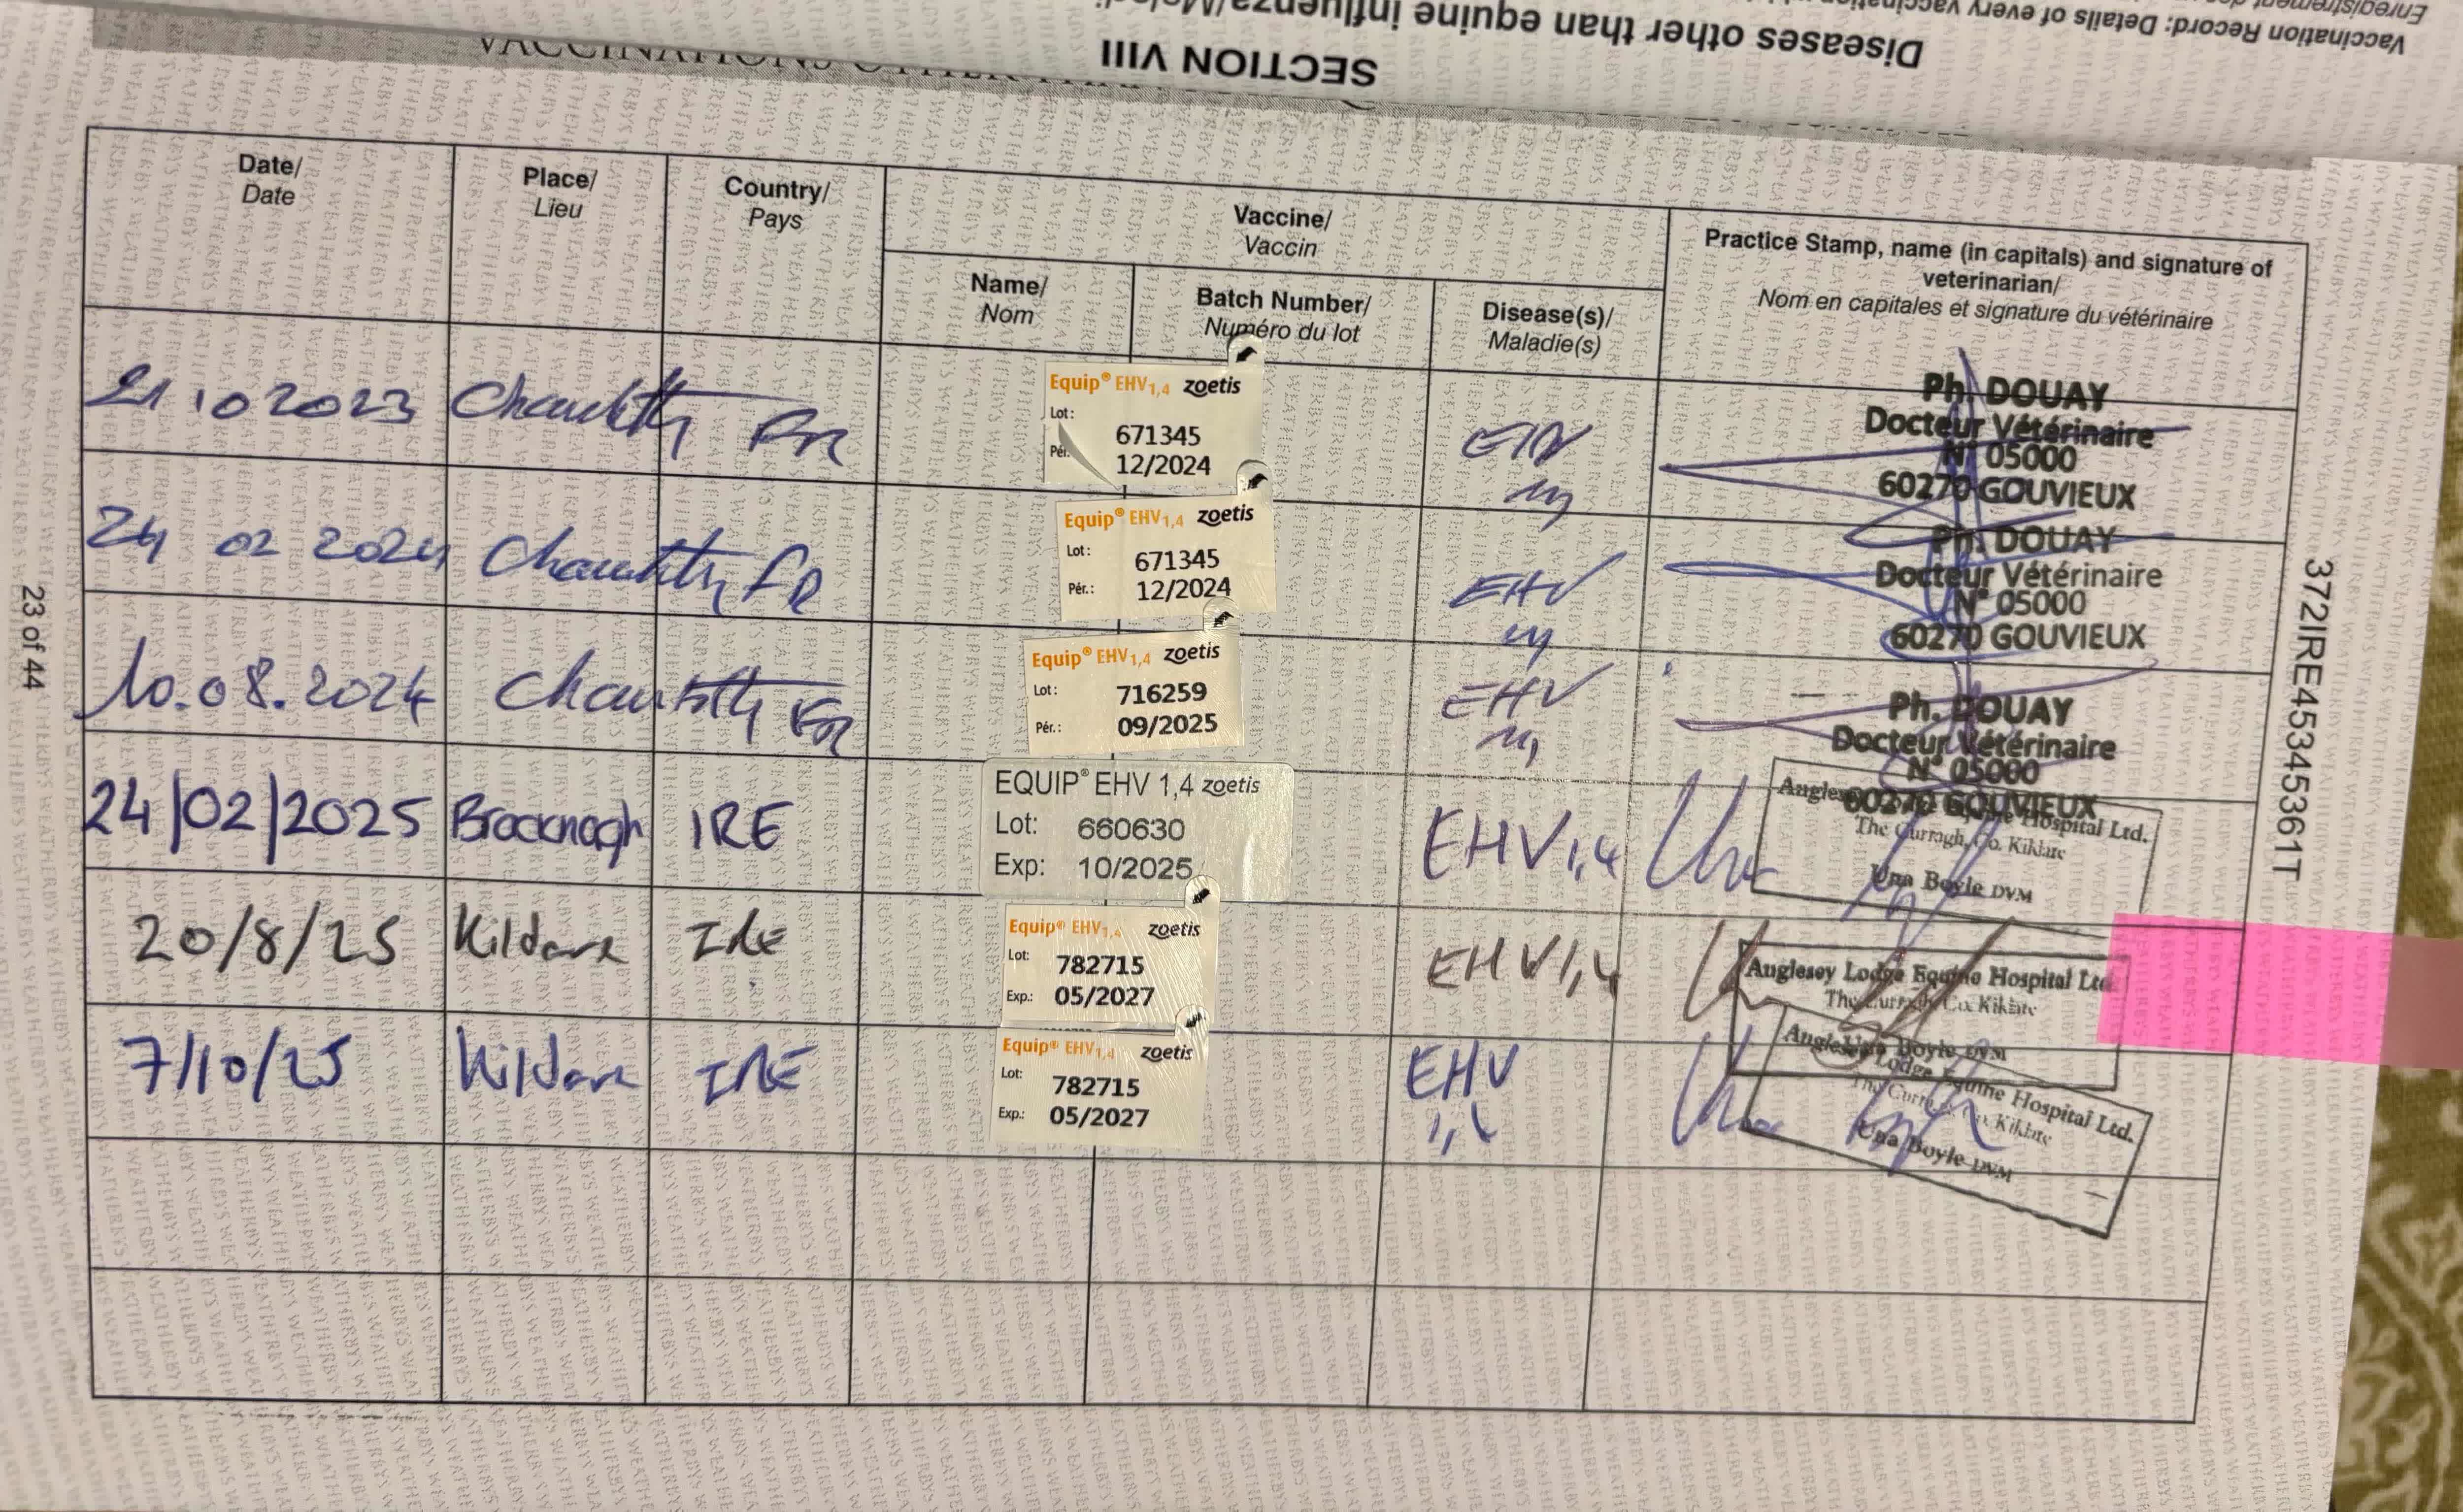 Vaccination Record: Details of every vaccination
Diseases other than equine influenza
SECTION VIII
Date/
Date
Place/
Lieu
Country/
Pays
Vaccine/
Vaccin
Name/
Nom
Batch Number/
Numéro du lot
Disease(s)/
Maladie(s)
Practice Stamp, name (in capitals) and signature of
veterinarian/
Nom en capitales et signature du vétérinaire
21.10 2023
Equip® EHV1,4 zoetis
Lot: 671345
Pér. 12/2024
Ph. DOUAY
Docteur Vétérinaire
N° 05000
60270 GOUVIEUX
24 02 2024
Equip® EHV1,4 zoetis
Lot: 671345
Pér.: 12/2024
EHV
Ph. DOUAY
Docteur Vétérinaire
N° 05000
60270 GOUVIEUX
10.08.2024
Equip® EHV1,4 zoetis
Lot: 716259
Pér.: 09/2025
EHV
Ph. DOUAY
Docteur Vétérinaire
N° 05000
60270 GOUVIEUX
24/02/2025 Bracknagh IRE
EQUIP® EHV 1,4 zoetis
Lot: 660630
Exp: 10/2025
EHV 1,4
Equine Hospital Ltd.
The Curragh, Co. Kildare
Una Boyle DVM
20/8/25 Kildare IRE
Equip® EHV1,4 zoetis
Lot: 782715
Exp.: 05/2027
EHV 1,4
Anglesey Lodge Equine Hospital Ltd.
The Curragh, Co. Kildare
Una Boyle DVM
7/10/25 Kildare IRE
Equip® EHV1,4 zoetis
Lot: 782715
Exp.: 05/2027
EHV
1,4
Anglesey Lodge Equine Hospital Ltd.
The Curragh, Co. Kildare
Una Boyle DVM
23 of 44
372IRE45345361T